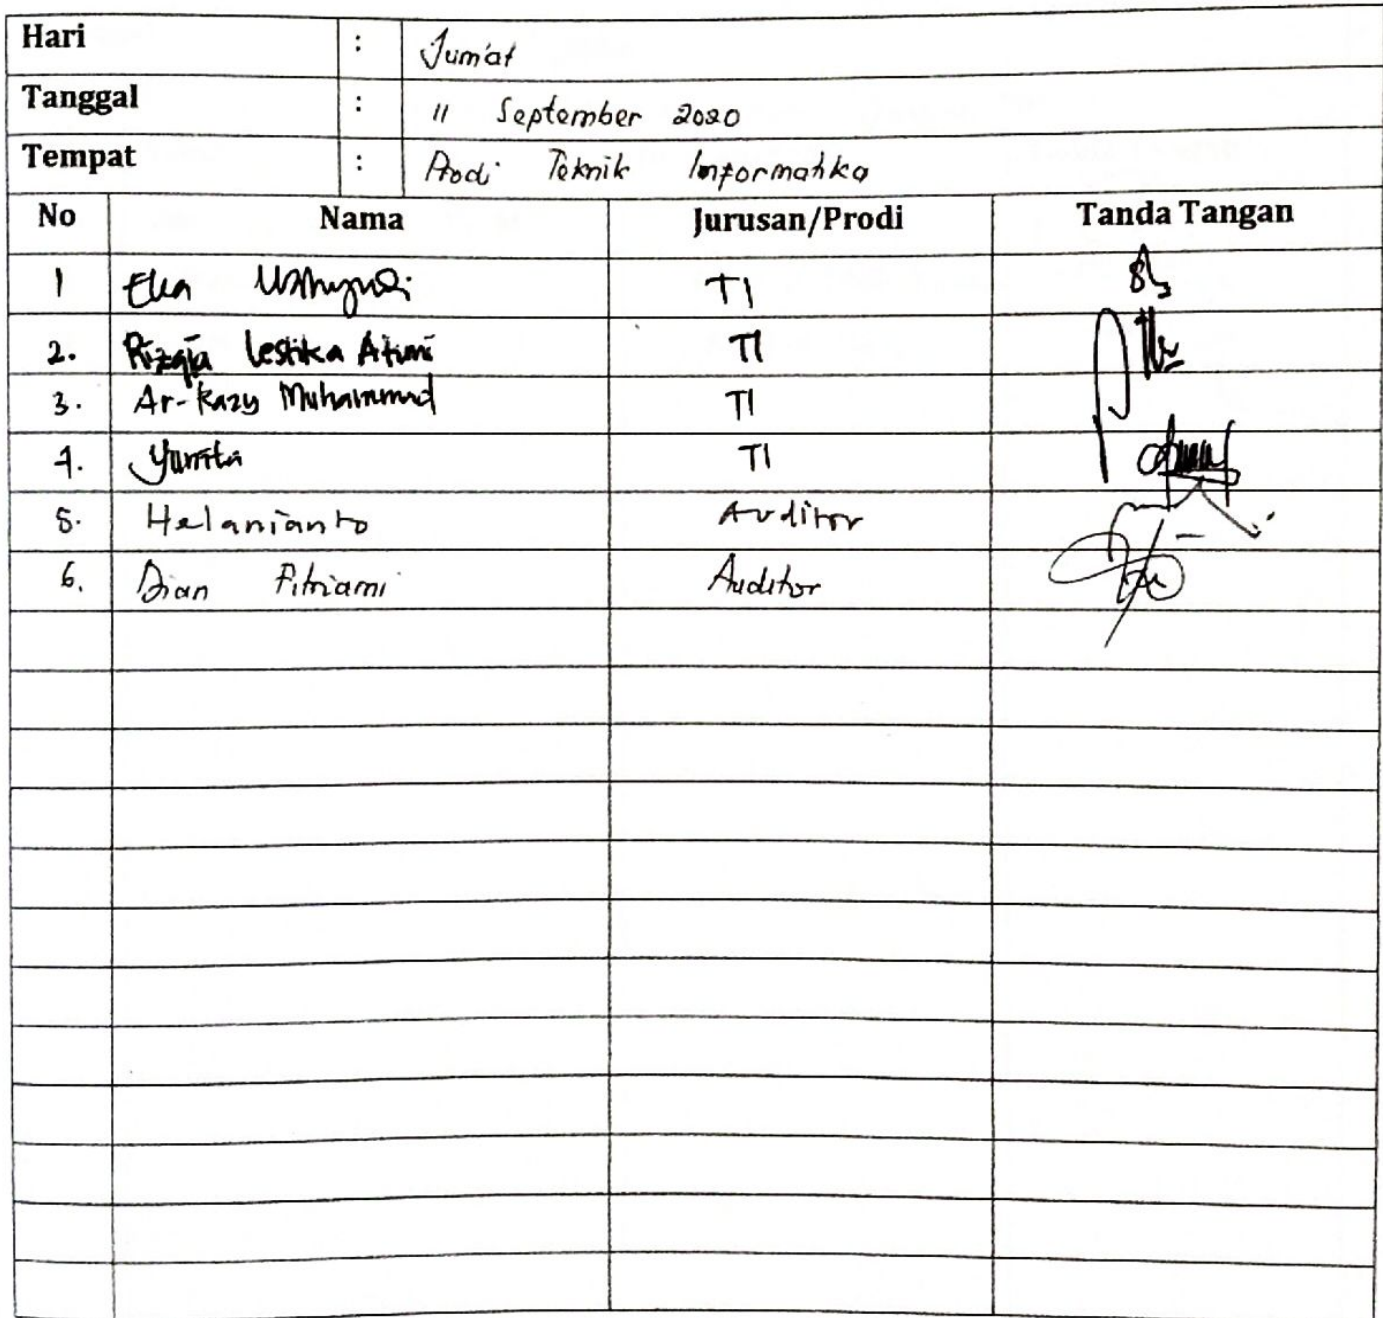 Hari : Jum'at
Tanggal : 11 September 2020
Tempat : Prodi Teknik Informatika
No Nama Jurusan/Prodi Tanda Tangan
1 Eka Wahyudi TI
2. Rizqia Lestika Atimi TI
3. Ar-Razy Muhammad TI
4. Yunita TI
5. Helanianto Auditor
6. Dian Fitriami Auditor